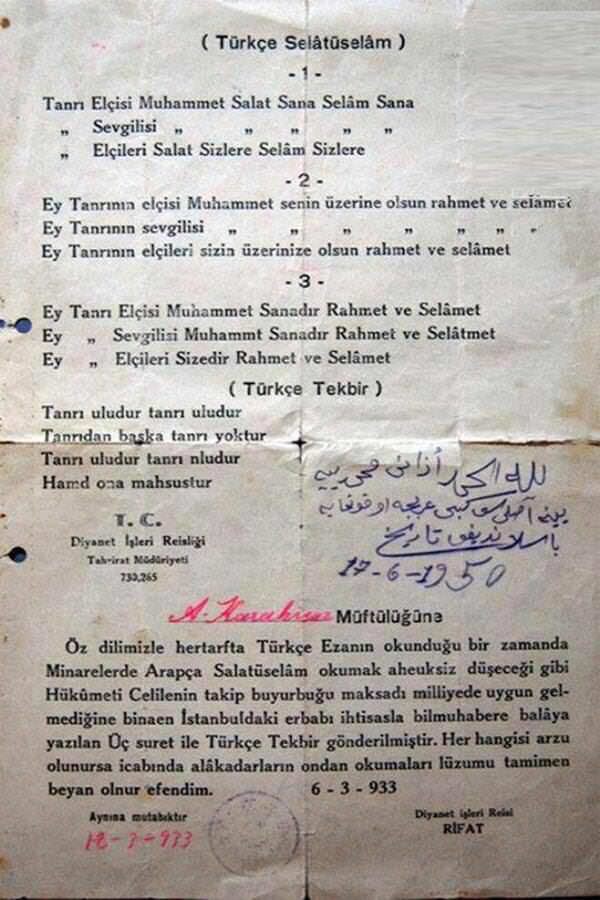 ( Türkçe Selâtüselâm )
- 1 -
Tanrı Elçisi Muhammet Salat Sana Selâm Sana
„ Sevgilisi „ „ „ „ „
„ Elçileri Salat Sizlere Selâm Sizlere
- 2 -
Ey Tanrının elçisi Muhammet senin üzerine olsun rahmet ve selâmet
Ey Tanrının sevgilisi „ „ „ „ „ „ „
Ey Tanrının elçileri sizin üzerinize olsun rahmet ve selâmet
- 3 -
Ey Tanrı Elçisi Muhammet Sanadır Rahmet ve Selâmet
Ey „ Sevgilisi Muhammt Sanadır Rahmet ve Selâtmet
Ey „ Elçileri Sizedir Rahmet ve Selâmet
( Türkçe Tekbir )
Tanrı uludur tanrı uludur
Tanrıdan başka tanrı yoktur
Tanrı uludur tanrı nludur
Hamd ona mahsustur
لله الحمد أذانى محمدييه
يينه اصلى كبى عربجه اوقونمايه
باشلانديغى تاريخ
17-6-1950
T. C.
Diyanet İşleri Reisliği
Tahrirat Müdüriyeti
730,265
A-Karahisar Müftülüğüne
Öz dilimizle hertarfta Türkçe Ezanın okunduğu bir zamanda
Minarelerde Arapça Salatüselâm okumak aheuksiz düşeceği gibi
Hükûmeti Celilenin takip buyurbuğu maksadı milliyede uygun gel-
mediğine binaen İstanbuldaki erbabı ihtisasla bilmuhabere balâya
yazılan Üç suret ile Türkçe Tekbir gönderilmiştir. Her hangisi arzu
olunursa icabında alâkadarların ondan okumaları lüzumu tamimen
beyan olnur efendim. 6 - 3 - 933
Aynına mutabıktır
12-3-933
Diyanet işleri Reisi
RİFAT